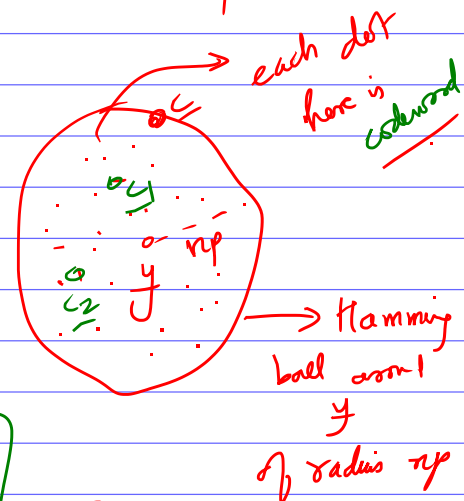 each dot
here is
codeword
c
c1
np
y
c2
Hamming
ball
y
of radius np